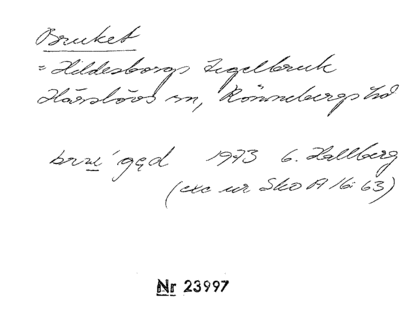 Bruket
= Hildesborgs tegelbruk
Härslövs sn, Rönnebergs hd
1973 G. Hallberg
(exc ur Sko A 16:63)
Nr 23997